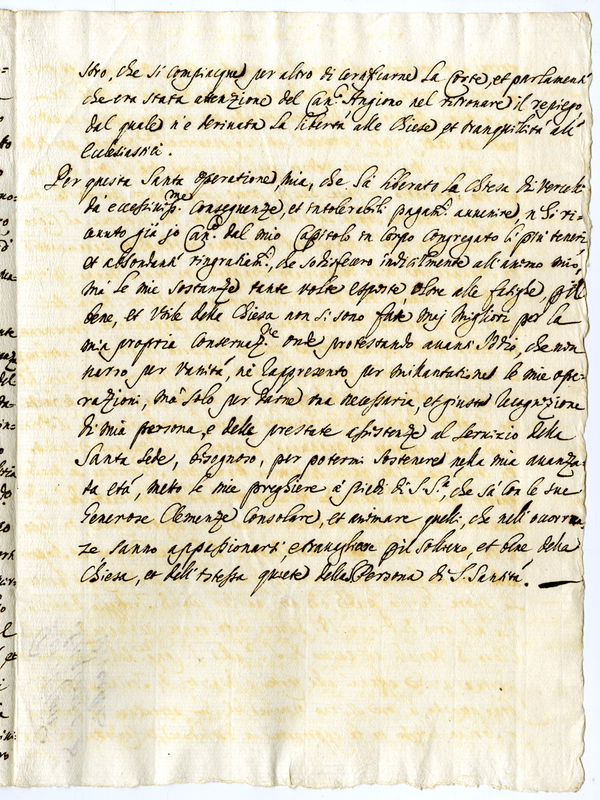 stro, che si compiacque per altro di certificarne la Corte, et parlamenti
che era stata attenzione del Can.co Angiono nel ritrovare il repiego
dal quale n'è derivata la libertà alle Chiese et tranquillità all'
Ecclesiastici.
Per questa Santa operatione mia, che hà liberato la Chiesa di Vercelli
dà eccessivis.me conseguenze, et intolerabili pagam.ti avvenire, n'hò ri-
cevuto già io Can.co dal mio Capitolo in Corpo congregato li più teneri
et abbondanti ringratiam.ti, che sodisfecero indicilmente all'animo mio,
mà le mie sostanze tante volte esposte oltre alle fatighe, p il
bene, et Utile della Chiesa non si sono fatte maj migliori per la
mia propria Conservaz.ne onde protestando avanti Iddio, che non
narro per vanità, nè rappresento per millantatione le mie ope-
razioni, mà solo per darne una necessaria, et giusta recognizione
di mia persona, e delle prestate assistenze al servizio della
Santa Sede, bisognoso, per potermi sostenere nella mia avanza-
ta età, meto le mie preghiere à piedi di S. S.tà, che sà con le sue
generose Clemenze Consolare, et animare quelli, che nell'occorren-
ze sanno appassionarsi e travagliare p il solievo, et bene della
Chiesa, et dell'istessa quiete della Persona di S. Santità.